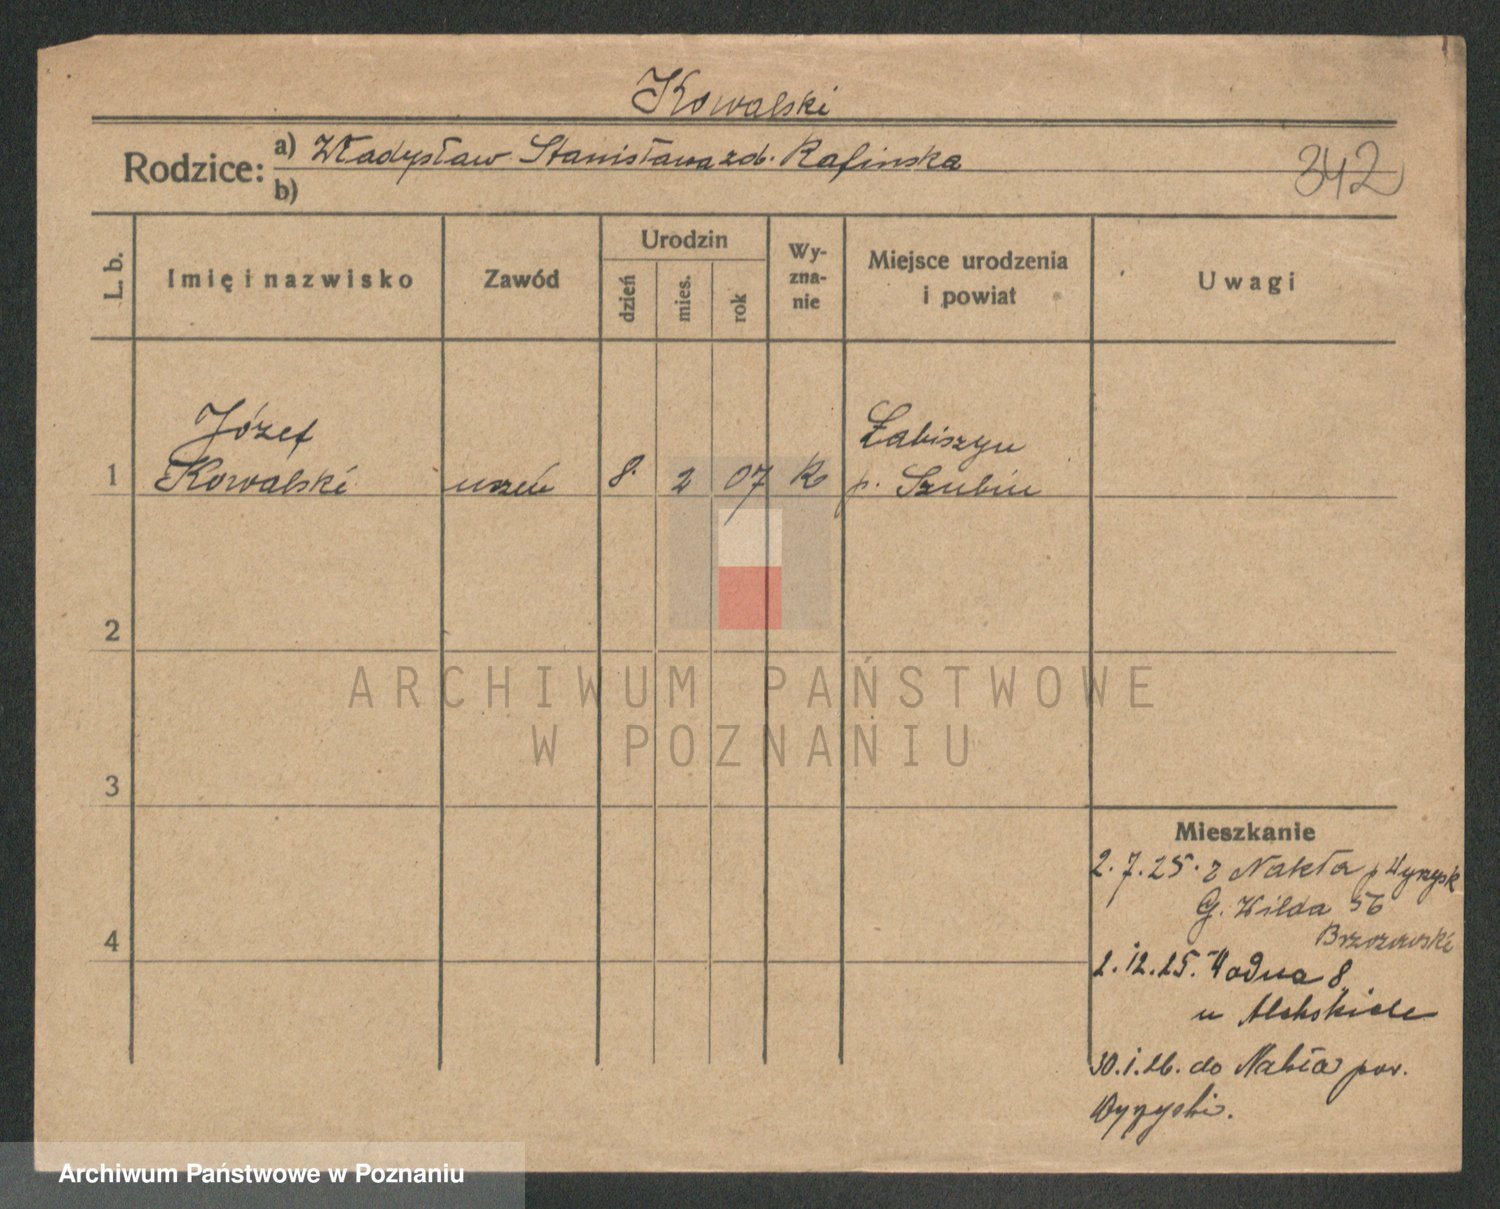 Kowalski
Rodzice: a) Władysław Stanisława zd. Rafinska
b)
342
L. b.
Imię i nazwisko
Zawód
Urodzin
dzień
mies.
rok
Wy-
zna-
nie
Miejsce urodzenia
i powiat
Uwagi
1
Józef
Kowalski
uczeń
8.
2
07
R
Łabiszyn
p. Szubin
2
3
4
ARCHIWUM PAŃSTWOWE
W POZNANIU
Mieszkanie
2.7.25. z Nakła p Wyrzysk
G. Wilda 56
Brzozowski
2.12.25. Wodna 8
u
30.1.26. do Nakła pow.
Wyrzyski.
Archiwum Państwowe w Poznaniu